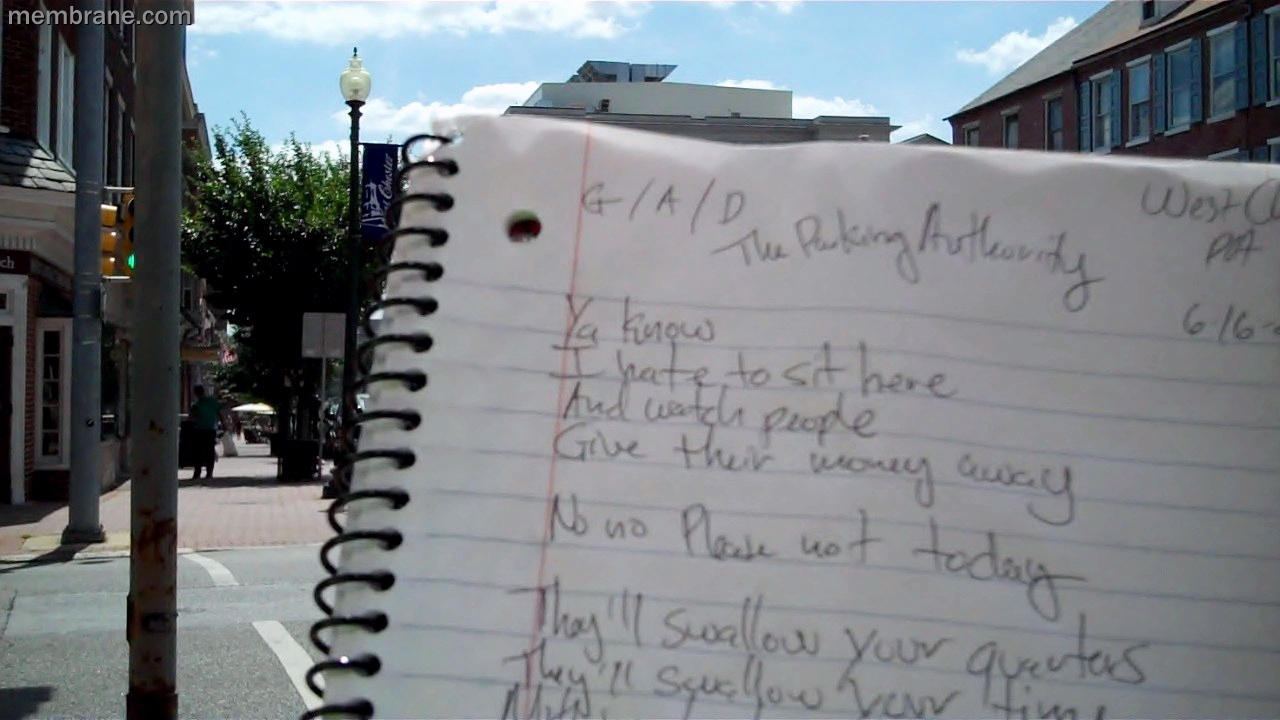 membrane.com
G/A/D
The Parking Authority
West C
PA
6/16
Ya know
I hate to sit here
And watch people
Give their money away
No no Please not today
They'll swallow your quarters
They'll swallow your time
ch